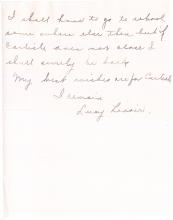 I shall have to go to school
some where else then but if
Carlisle does not close I
shall surely be back
My best wishes are for Carlisle
I remain
Lucy Lenoir.